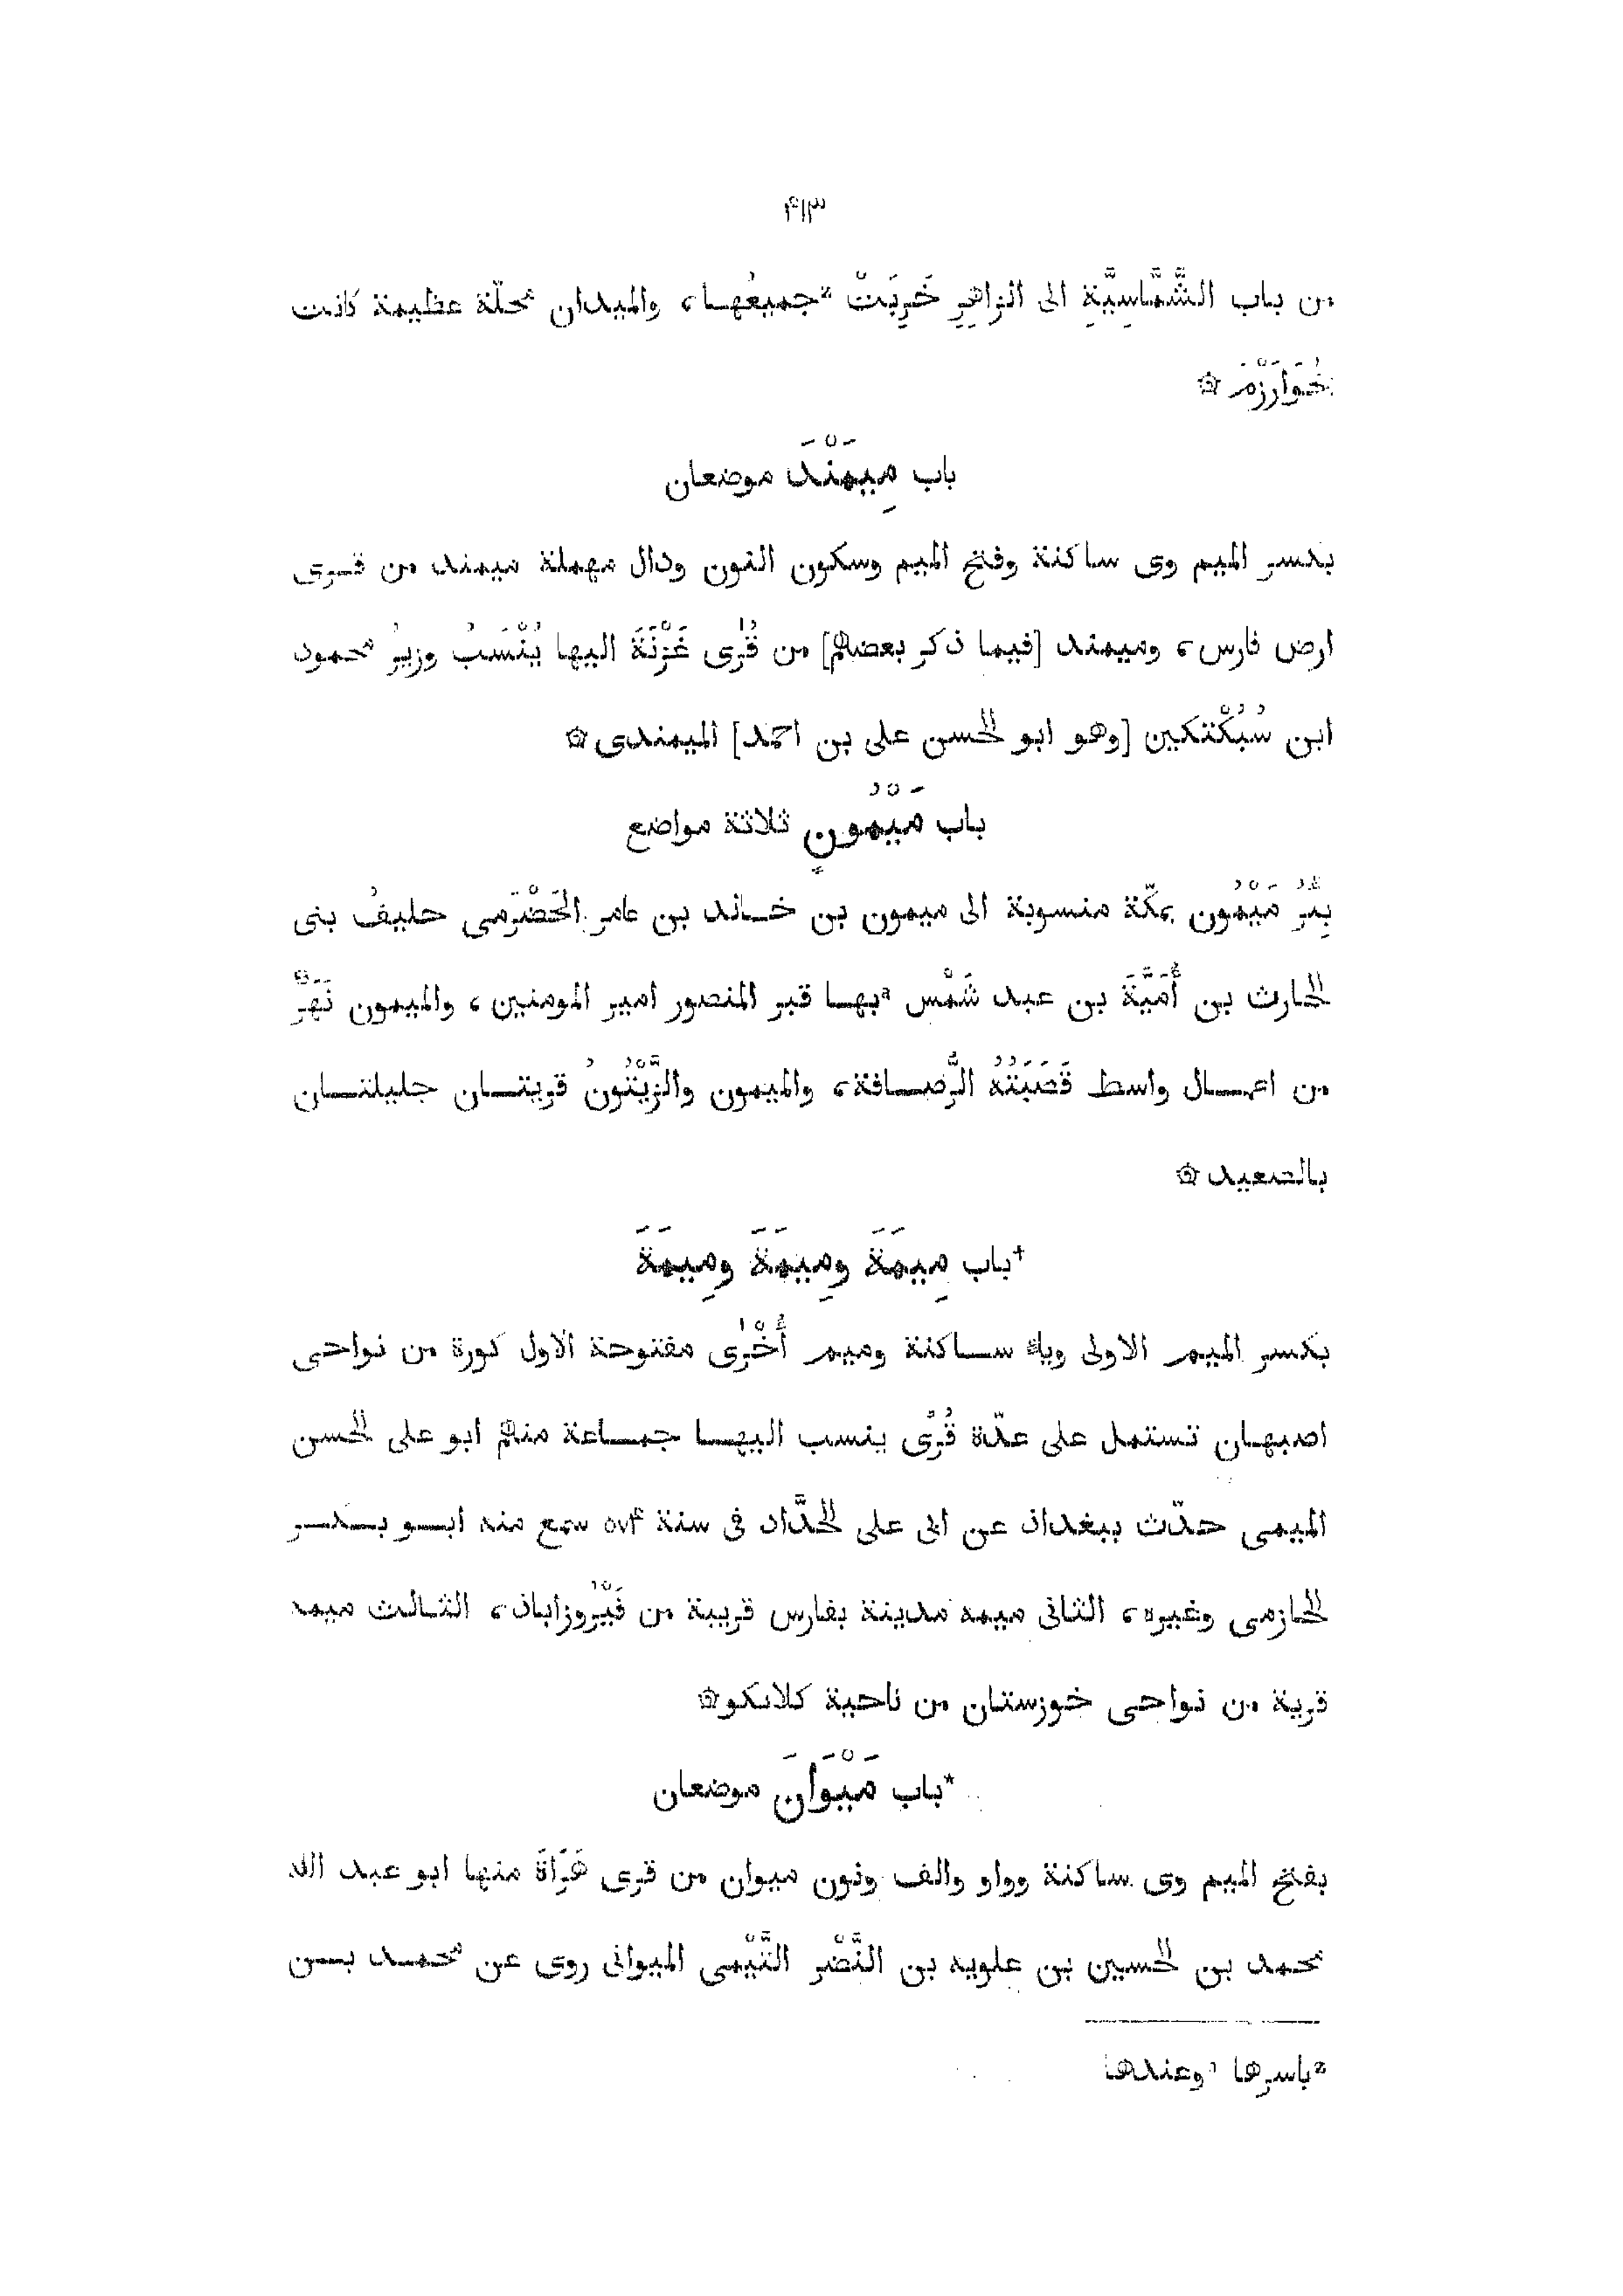 ٤١٣
من باب الشَّمَّاسِيَّةِ الى الزاهِرِ خَرِبَتْ <sup>z</sup>جميعُها، والميدان محلّة عظيمة كانت
بخُوَارَزْمَ ۞
باب مِيمَنْدَ موضعان
بكسر الميم وى ساكنة وفتح الميم وسكون النون ودال مهملة ميمند من قرى
ارض فارس، وميمند [فيما ذكر بعضهم] من قُرٰى غَزْنَةَ اليها يُنْسَبُ وزيرُ محمود
ابن سُبُكْتكين [وهو ابو الحسن على بن احمد] الميمندى ۞
باب مَيْمُونٍ ثلاثة مواضع
بِئْرُ مَيْمُون بمكّة منسوبة الى ميمون بن خالد بن عامر الحَضْرَمى حليفُ بنى
الحارث بن أُمَيَّةَ بن عبد شَمْس <sup>a</sup>بها قبر المنصور امير المومنين، والميمون نَهَرٌ
من اعمال واسط قَصَبَتُهُ الرُّصافة، والميمون والزَّيْتُونُ قريتان جليلتان
بالصعيد ۞
†باب مِيمَةَ ومِيمَةَ ومِيمَةَ
بكسر الميم الاولى وياء ساكنة وميم أُخْرٰى مفتوحة الاول كورة من نواحى
اصبهان تستمل على عدّة قُرًى ينسب اليها جماعة منهم ابو على الحسن
الميمى حدّث ببغداذ عن ابى على الحَدَّاد فى سنة ٥٧٤ سمع منه ابو بكر
الحازمى وغيره، الثانى ميمه مدينة بفارس قريبة من فَيْرُوزاباذ، الثالث ميمه
قرية من نواحى خوزستان من ناحية كلانكو۞
*باب مَيْوَانَ موضعان
بفتح الميم وى ساكنة وواو والف ونون ميوان من قرى هَرَاةَ منها ابو عبد الله
محمد بن الحسين بن علويه بن النَّضْر التَّيْمى الميوانى روى عن محمد بن
<sup>z</sup>باسرها وعندها